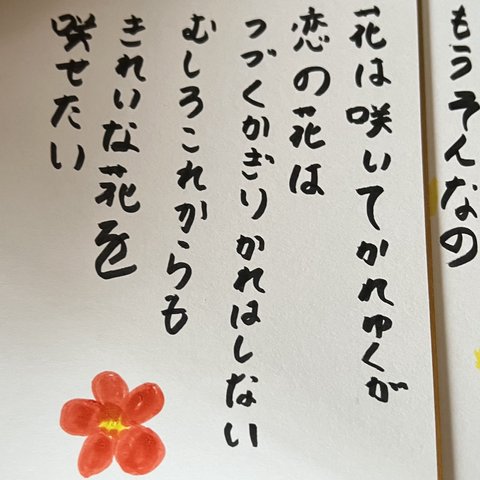 もうそんなの
花は咲いてかれゆくが
恋の花は
つづくかぎりかれはしない
むしろこれからも
きれいな花を
咲せたい